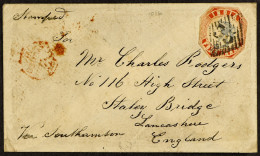 Stamped
For
Mr Charles Rodgers
No 116 High Street
Staley Bridge
Lancashire
Via Southampton England